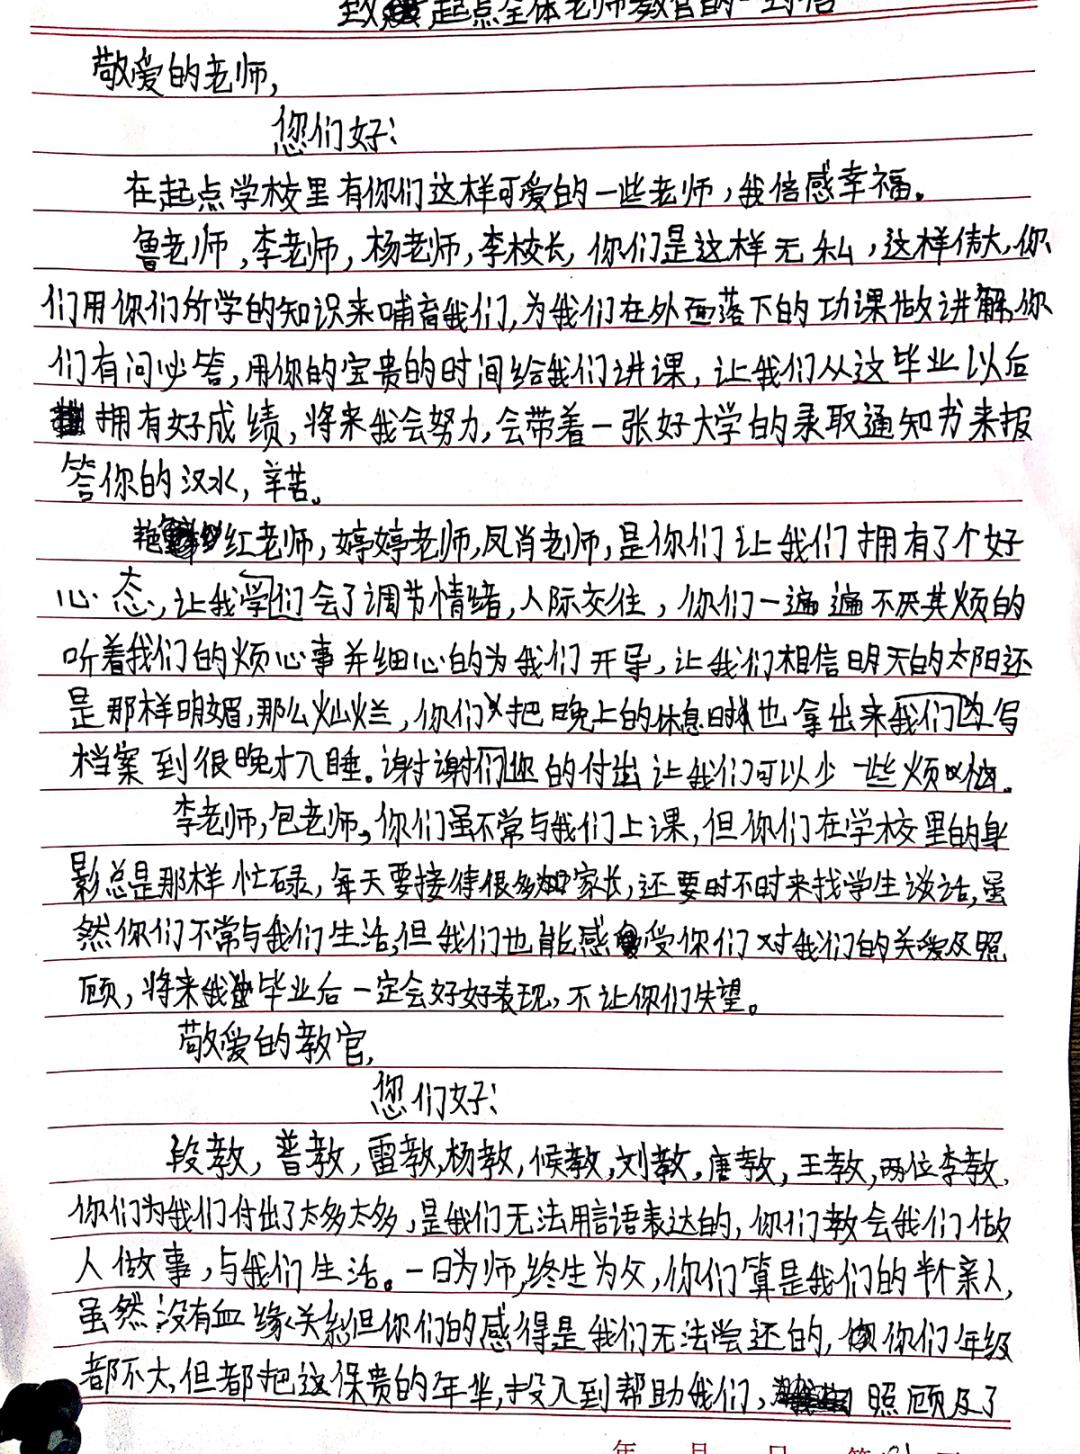 致起点全体老师教官的一封信
敬爱的老师,
您们好:
在起点学校里有你们这样可爱的一些老师,我倍感幸福。
鲁老师,李老师,杨老师,李校长,你们是这样无私,这样伟大,你
们用你们所学的知识来哺育我们,为我们在外面落下的功课做讲解,你
们有问必答,用你的宝贵的时间给我们讲课,让我们从这毕业以后
拥有好成绩,将来我会努力,会带着一张好大学的录取通知书来报
答你的汉水,辛苦。
艳红老师,婷婷老师,凤肖老师,是你们让我们拥有了个好
心态,让我们学会了调节情绪,人际交往,你们一遍遍不厌其烦的
听着我们的烦心事并细心的为我们开导,让我们相信明天的太阳还
是那样明媚,那么灿烂,你们把晚上的休息时也拿出来给我们写
档案到很晚才入睡。谢谢你们的付出让我们可以少一些烦恼。
李老师,包老师,你们虽不常与我们上课,但你们在学校里的身
影总是那样忙碌,每天要接待很多家长,还要时不时来找学生谈话,虽
然你们不常与我们生活,但我们也能感受你们对我们的关爱及照
顾,将来我毕业后一定会好好表现,不让你们失望。
敬爱的教官,
您们好:
段教,普教,雷教,杨教,候教,刘教,唐教,王教,两位李教,
你们为我们付出了太多太多,是我们无法用言语表达的,你们教会我们做
人做事,与我们生活。一日为师,终生为父,你们算是我们的半个亲人,
虽然没有血缘关系但你们的感得是我们无法尝还的,你们年级
都不大,但都把这保贵的年华,投入到帮助我们,照顾及了
年 月 日 第 页